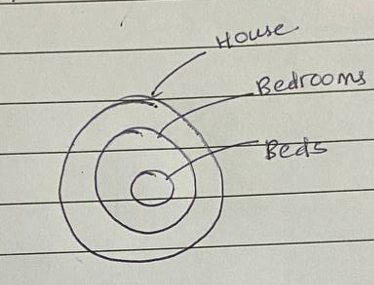 House
Bedrooms
Beds